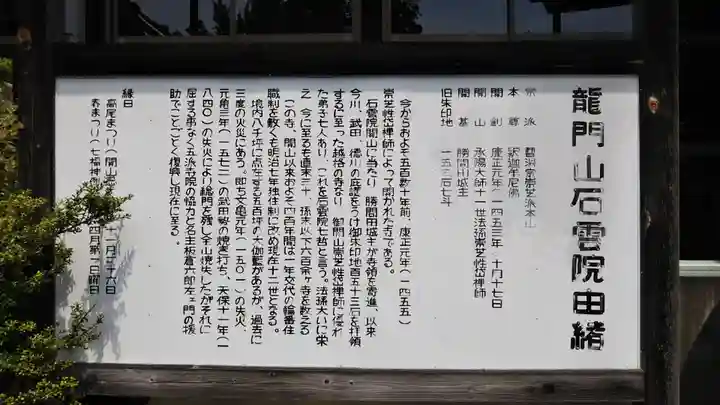 龍門山石雲院由緒
宗派 曹洞宗崇芝派本山
本尊 釈迦牟尼佛
開創 康正元年(一四五三年)十月十七日
開山 永陽大師十一世法孫崇芝性岱禅師
開基 勝間田城主
旧朱印地 一五三石七斗
今からおよそ五百数十年前、康正元年(一四五五)
崇芝性岱禅師によって開かれた寺である。
石雲院開山に当たり 勝間田城主が寺領を寄進、以来
今川、武田、徳川の庇護をうけ御朱印地百五十三石を拝領
するに至った越格の寺なり 御開山崇芝性岱禅師に優れ
た弟子七人あり、これを石雲院七哲と言う。法孫大いに栄
之 今に至るも直末三十、孫末以下六百余ヶ寺を数える
この寺、開山以来およそ四百年間は一年交代の輪番住
職制を敷くも明治七年独住制に改め現在十二世となる。
境内八千坪に点在する五百坪の大伽藍があるが、過去に
三度の火災にあう。即ち文亀元年(一五〇一)の失火、
元亀三年(一五七二)の武田勢の焼き打ち、天保十一年(一
八四〇)の失火により總門を残し全山焼失したがそれに
屈する事なく五派寺院の協力と名主板倉六郎左ェ門の援
助でことごとく復興し現在に至る。
縁日
高尾まつり(開山 二月二十六日
春まつり(七福神 四月第一日曜日